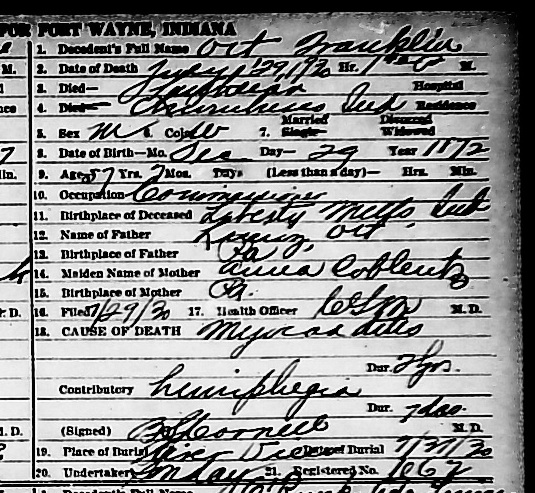 FOR FORT WAYNE, INDIANA
1. Decedent's Full Name Ort Franklin
2. Date of Death July 29, 1930 Hr. M.
3. Died— Lutheran Hospital
4. Died— Churubusco Ind Residence
5. Sex M 6. Color W 7. Married Single Divorced Widowed
8. Date of Birth—Mo. Dec Day— 29 Year 1872
9. Age 57 Yrs. 7 Mos. Days (Less than a day)— Hrs. Min.
10. Occupation
11. Birthplace of Deceased Liberty Mills, Ind
12. Name of Father Ort
13. Birthplace of Father Pa
14. Maiden Name of Mother Anna Coblentz
15. Birthplace of Mother Pa.
16. Filed 7/29/30 17. Health Officer M. D.
18. CAUSE OF DEATH Myocarditis
Dur. 2 yrs.
Contributory hemiplegia
Dur. 7 das.
(Signed) M. D.
19. Place of Burial Date of Burial 7/31/30
20. Undertaker 21. Registered No. 667